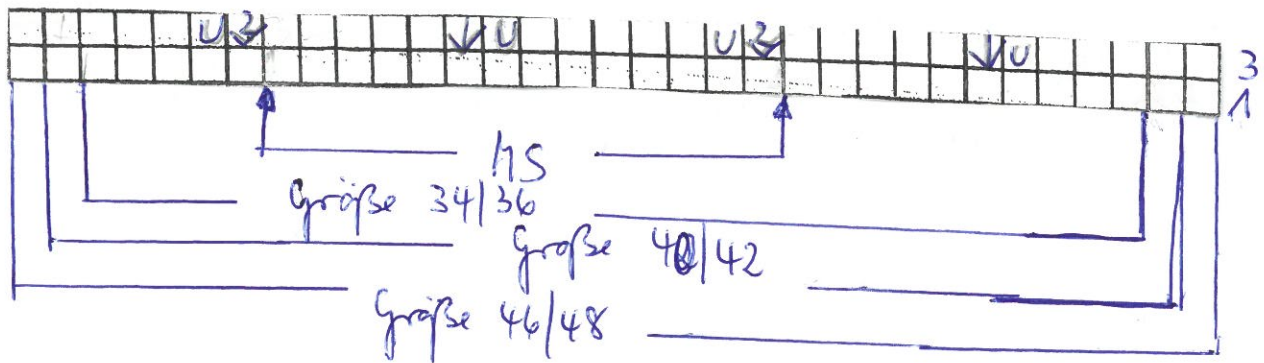 U 2 U U 2 U
3
1
MS
Größe 34/36
Größe 40/42
Größe 46/48